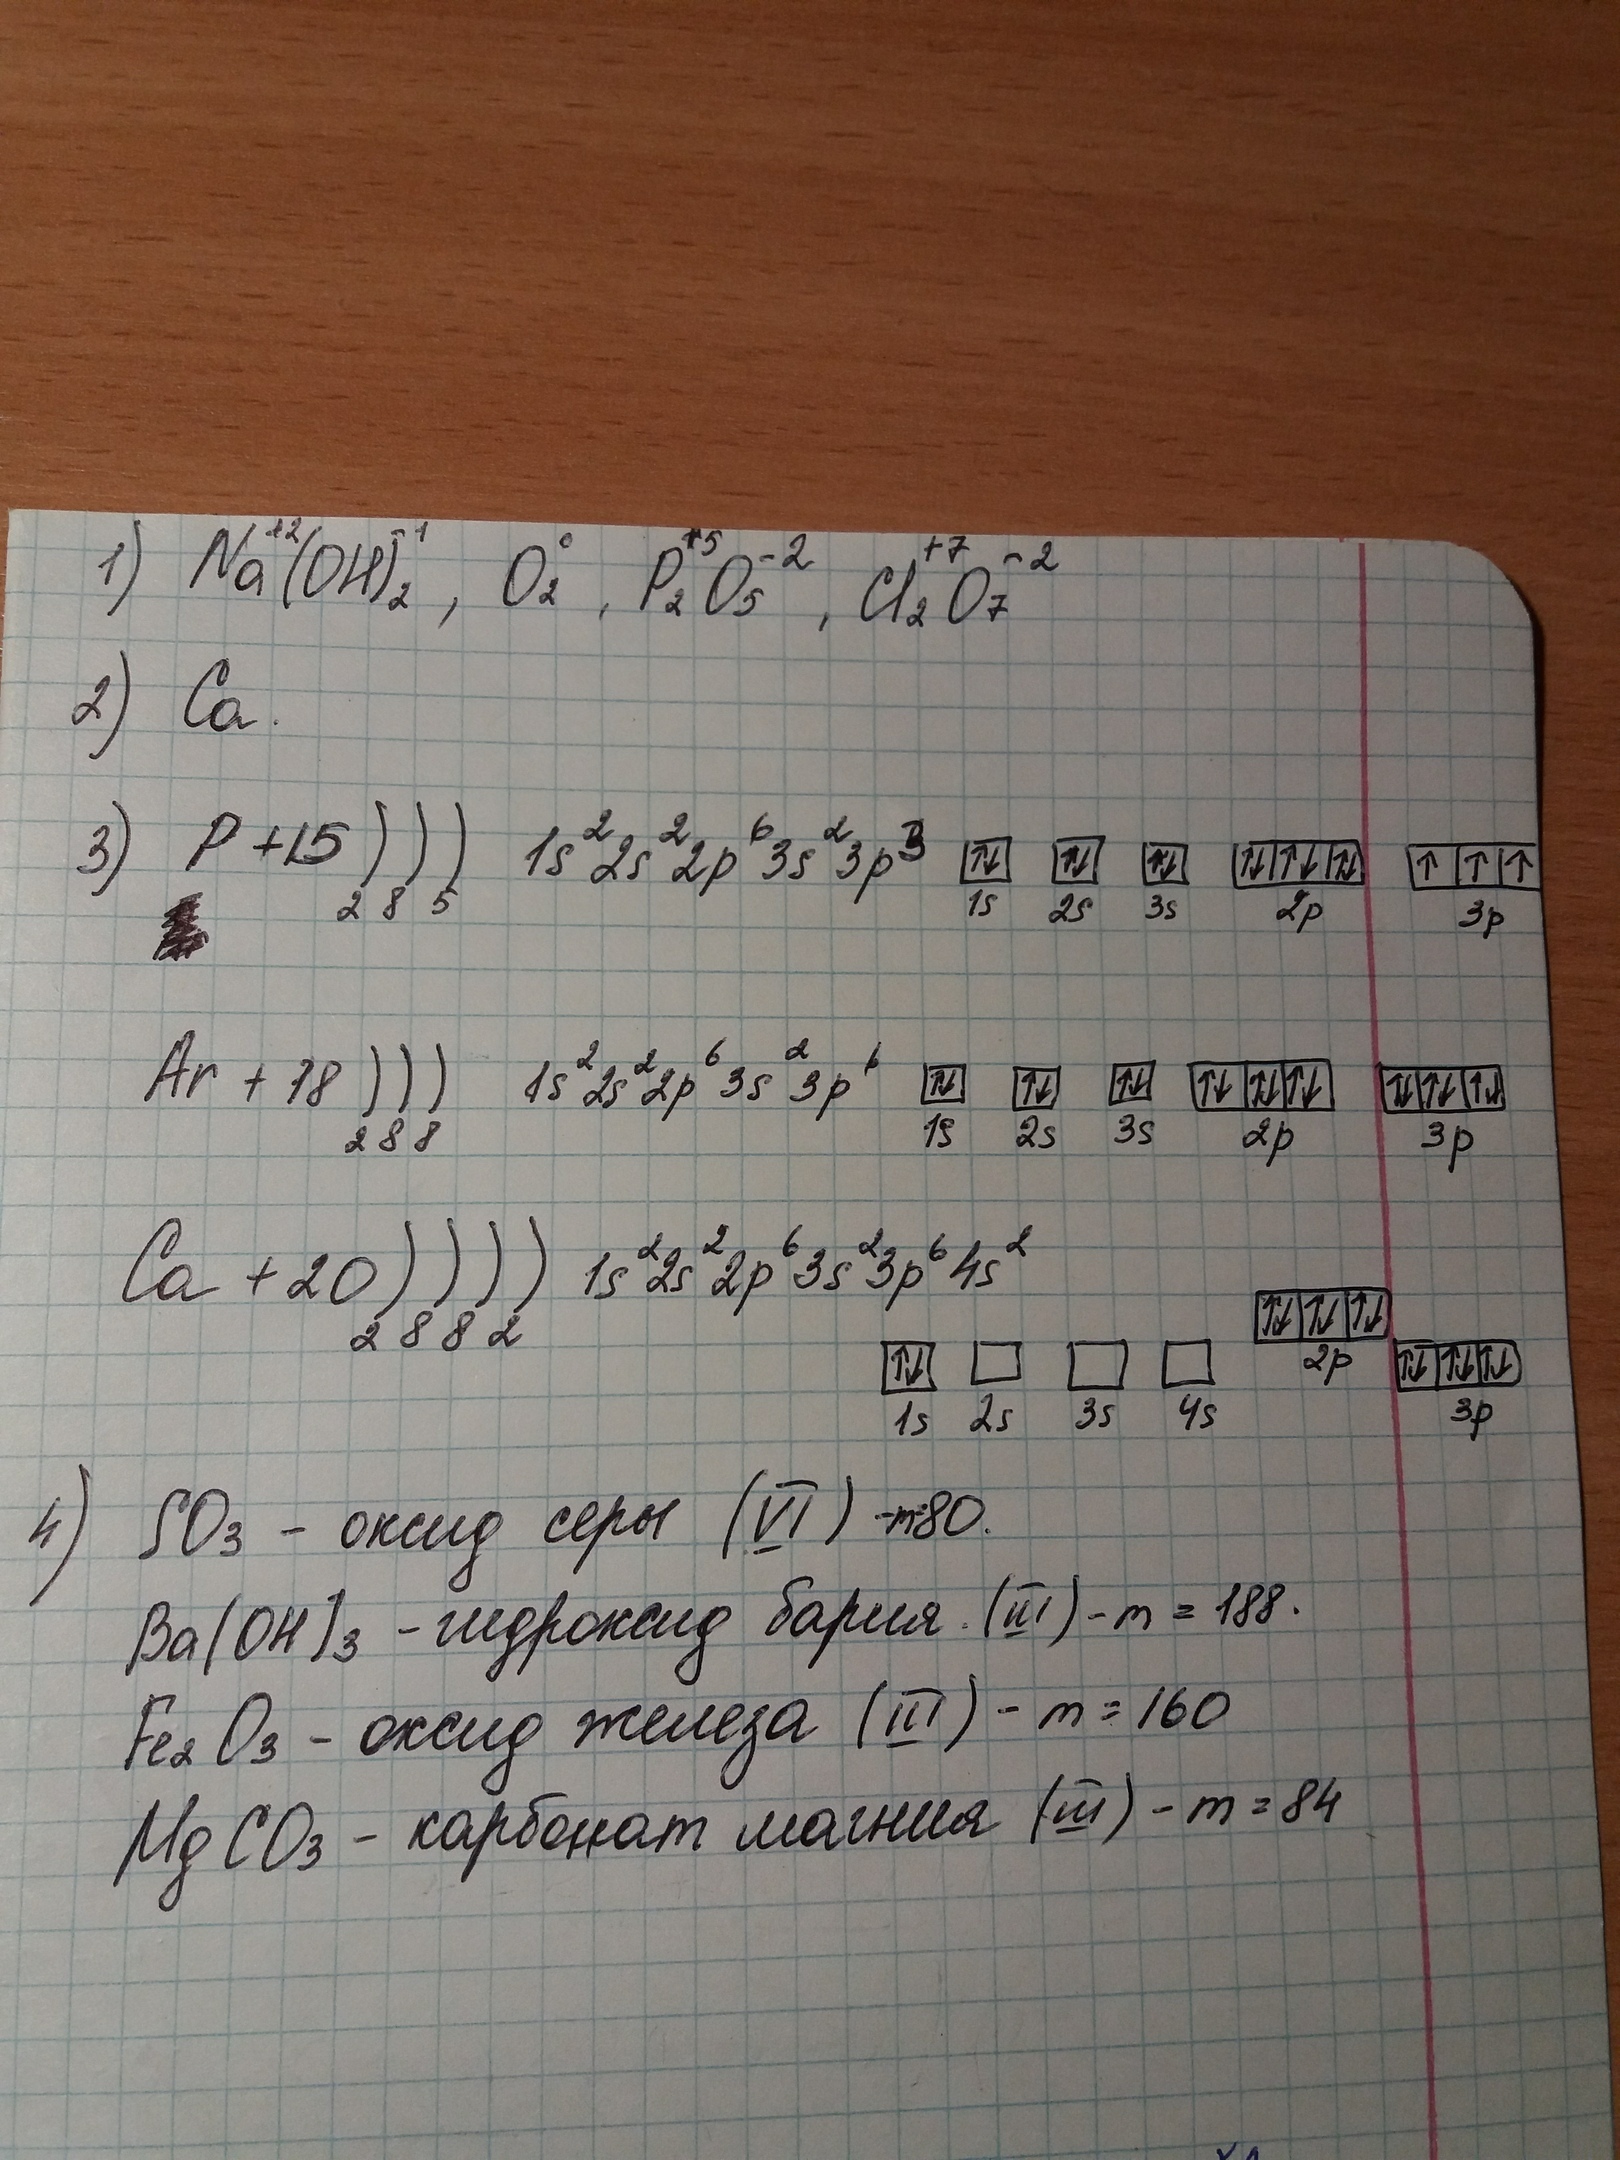 1) Na⁺²(OH)₂⁻¹, O₂⁰, P₂⁺⁵O₅⁻², Cl₂⁺⁷O₇⁻²
2) Ca.
3) P +15 ) ) ) 1s²2s²2p⁶3s²3p³ ↑↓ ↑↓ ↑↓ ↑↓ ↑↓ ↑↓ ↑ ↑ ↑
2 8 5 1s 2s 3s 2p 3p
Ar +18 ) ) ) 1s²2s²2p⁶3s²3p⁶ ↑↓ ↑↓ ↑↓ ↑↓ ↑↓ ↑↓ ↑↓ ↑↓ ↑↓
2 8 8 1s 2s 3s 2p 3p
Ca +20 ) ) ) ) 1s²2s²2p⁶3s²3p⁶4s²
2 8 8 2
↑↓ ↑↓ ↑↓ ↑↓ ↑↓ ↑↓ ↑↓
1s 2s 3s 4s 2p 3p
4) SO₃ - оксид серы (VI) - m=80.
Ba(OH)₃ - гидроксид бария. (III) - m = 188.
Fe₂O₃ - оксид железа (III) - m = 160
MgCO₃ - карбонат магния (III) - m = 84